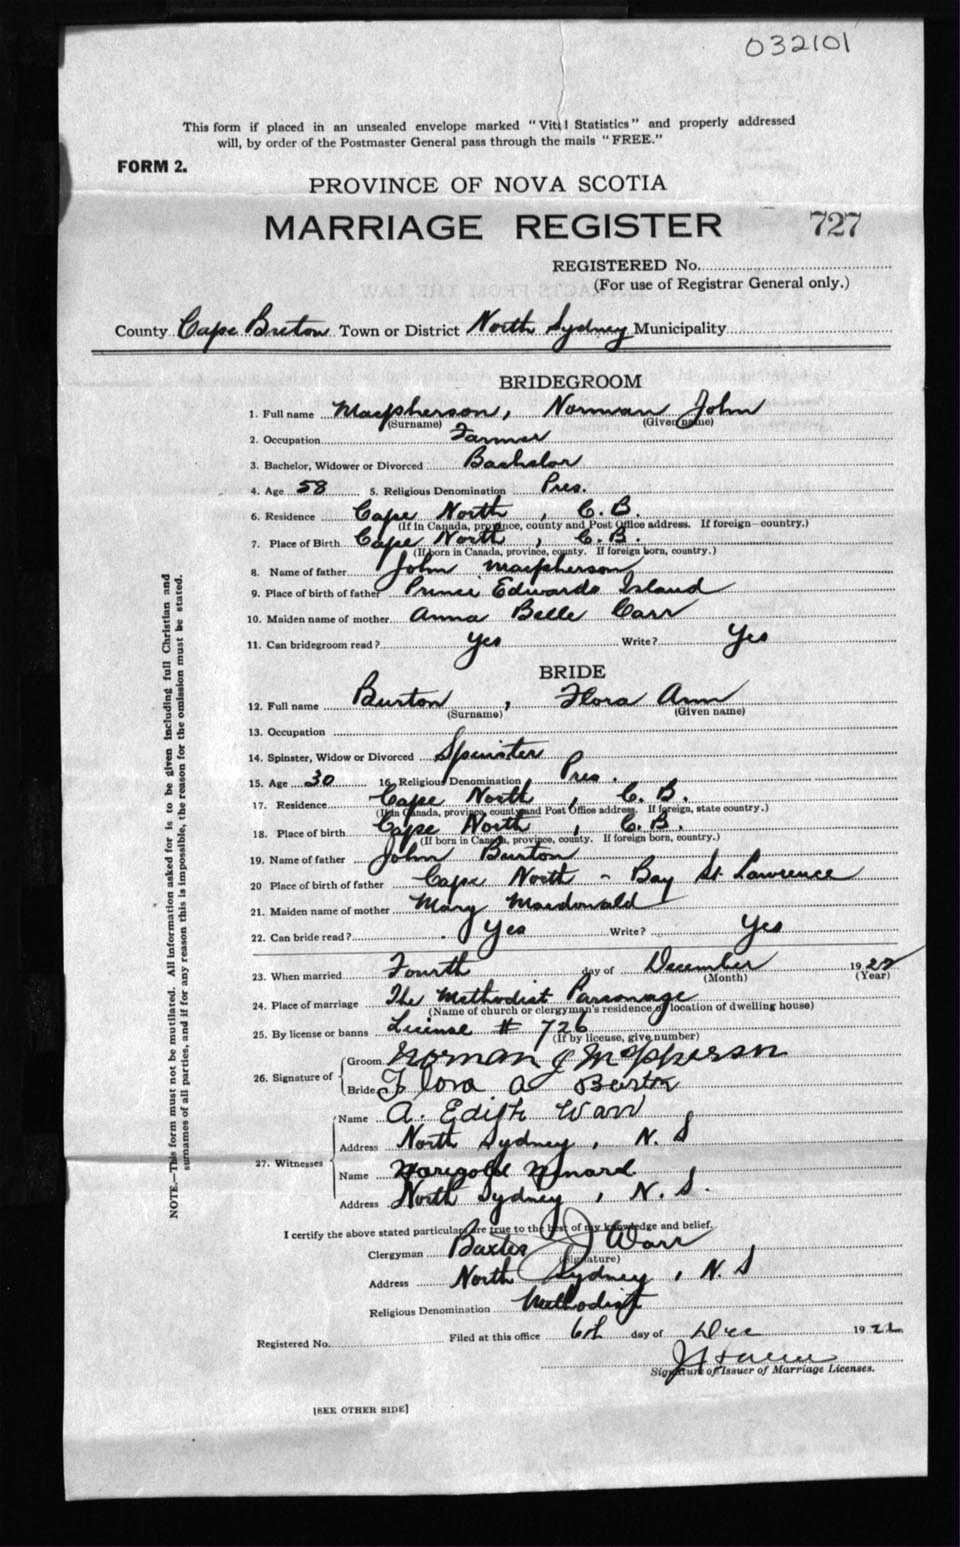 032101
This form if placed in an unsealed envelope marked "Vital Statistics" and properly addressed
will, by order of the Postmaster General pass through the mails "FREE."
FORM 2.
PROVINCE OF NOVA SCOTIA
MARRIAGE REGISTER 727
REGISTERED No.
(For use of Registrar General only.)
County Cape Breton Town or District North Sydney Municipality
BRIDEGROOM
1. Full name Macpherson, Norman John
(Surname) (Given name)
2. Occupation Farmer
3. Bachelor, Widower or Divorced Bachelor
4. Age 58 5. Religious Denomination Pres.
6. Residence Cape North, C. B.
(If in Canada, province, county and Post Office address. If foreign—country.)
7. Place of Birth Cape North, C. B.
(If born in Canada, province, county. If foreign born, country.)
8. Name of father John Macpherson
9. Place of birth of father Prince Edwards Island
10. Maiden name of mother Anna Belle Carr
11. Can bridegroom read? Yes Write? Yes
BRIDE
12. Full name Burton, Flora Ann
(Surname) (Given name)
13. Occupation
14. Spinster, Widow or Divorced Spinster
15. Age 30 16. Religious Denomination Pres.
17. Residence Cape North, C. B.
(If in Canada, province, county and Post Office address. If foreign, state country.)
18. Place of birth Cape North, C. B.
(If born in Canada, province, county. If foreign born, country.)
19. Name of father John Burton
20 Place of birth of father Cape North - Bay St. Lawrence
21. Maiden name of mother Mary Macdonald
22. Can bride read? Yes Write? Yes
23. When married Fourth day of December 1922
(Month) (Year)
24. Place of marriage The Methodist Parsonage
(Name of church or clergyman's residence or location of dwelling house)
25. By license or banns License # 726
(If by license, give number)
26. Signature of Groom Norman J McPherson
Bride Flora A Burton
27. Witnesses Name A. Edith Warr
Address North Sydney, N. S
Name Marigold
Address North Sydney, N. S.
I certify the above stated particulars are true to the best of my knowledge and belief.
Clergyman Baxter J Warr
(Signature)
Address North Sydney, N. S
Religious Denomination Methodist
Registered No. Filed at this office 6th day of Dec 1922
Signature of Issuer of Marriage Licenses.
[SEE OTHER SIDE]
NOTE.—This form must not be mutilated. All information asked for is to be given including full Christian and
surnames of all parties, and if for any reason this is impossible, the reason for the omission must be stated.